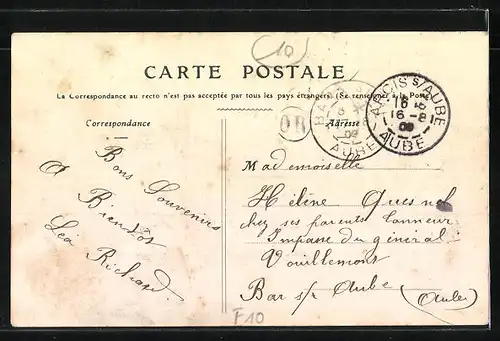 (10)
CARTE POSTALE
La Correspondance au recto n'est pas acceptée par tous les pays étrangers. (Se renseigner à la Poste)
Correspondance
Adresse
OR
BA
AUBE
09
ARCIS S/AUBE
16
16-8
09
AUBE
Bons Souvenirs
A Bientot
Léa Richard
Mademoiselle
Hélène Quesnel
chez ses parents tonneur
Impasse du général
Vouillemont
Bar s/r Aube (Aube)
F10